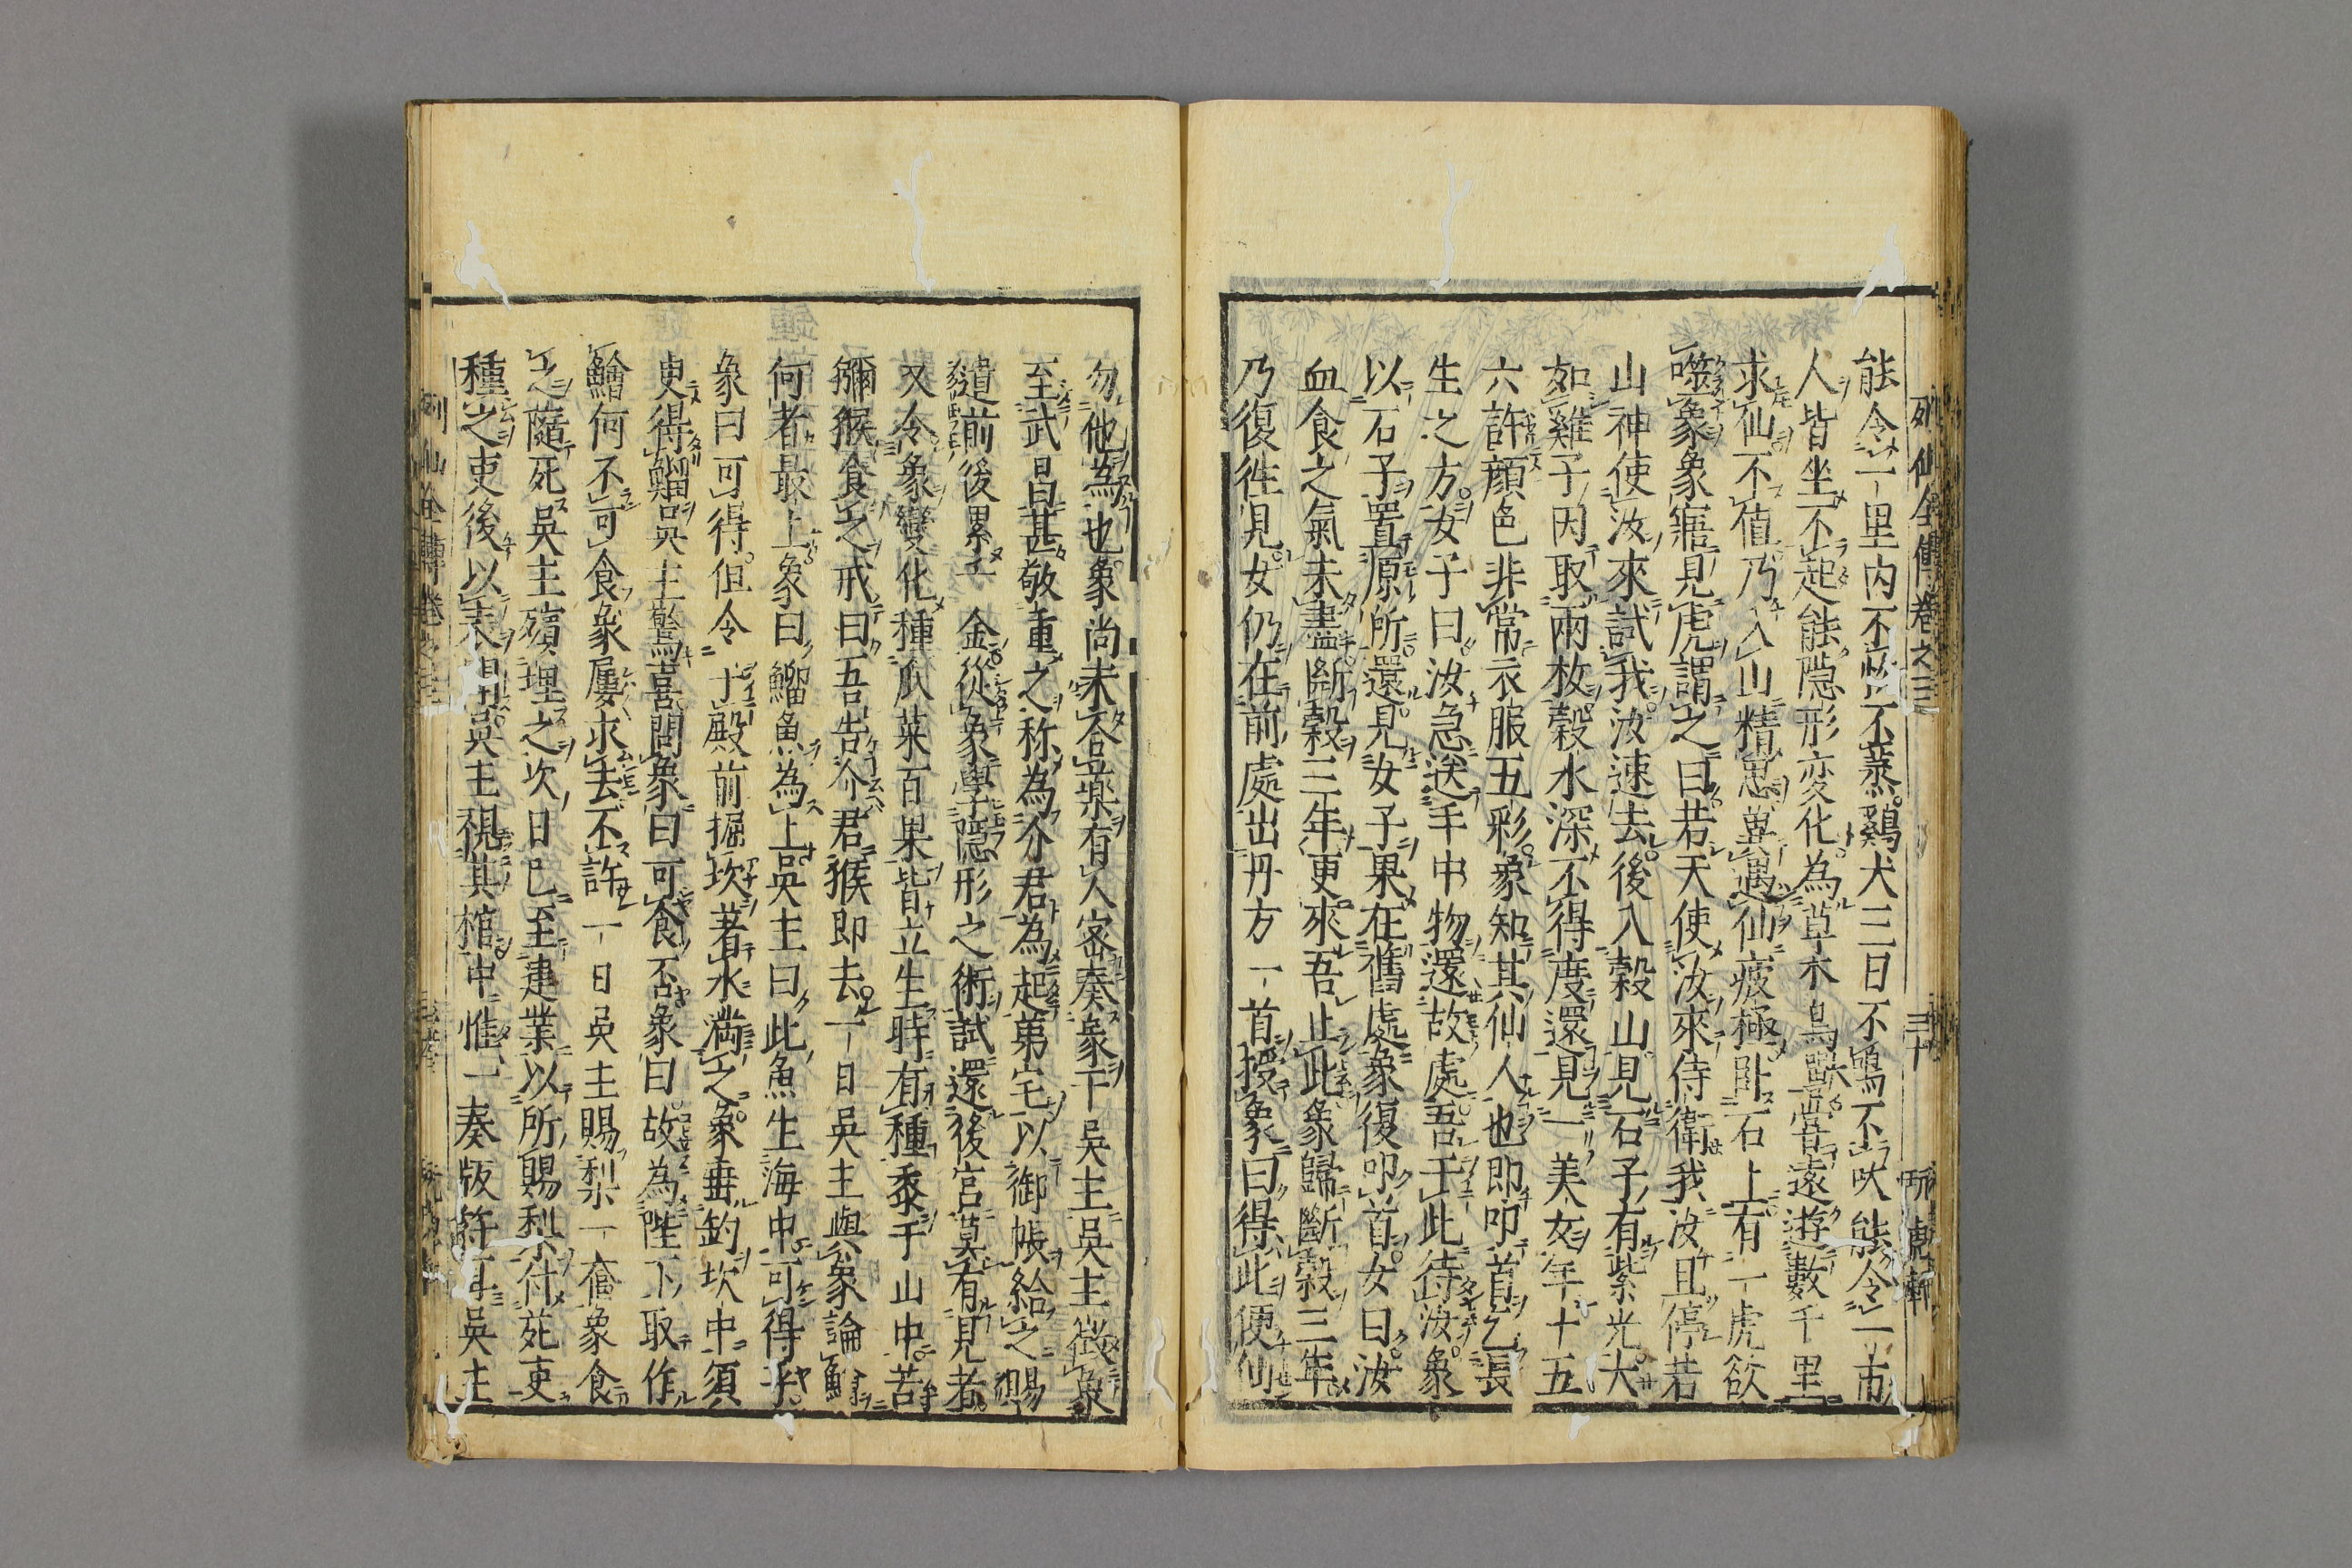 列仙全傳卷之三 三十 玩虎軒
能令一里内不炊不蒸鷄犬三日不鳴不吠能令一市
人皆坐不起能隠形変化為草木鳥獸嘗遠遊數千里
求仙不值乃入山精思兾遇仙疲極卧石上有一虎欲
噬象象寤見虎謂之曰若天使汝來侍衛我汝且停若
山神使汝來試我汝速去後入穀山見石子有紫光大
如雞子因取兩枚穀水深不得度還見一美女年十五
六許顔色非常衣服五彩象知其仙人也即叩首乞長
生之方女子曰汝急送手中物還故處吾于此待汝象
以石子置原所還見女子果在舊處象復叩首女曰汝
血食之氣未盡斷穀三年更來吾止此象歸斷穀三年
乃復徃見女仍在前處出丹方一首授象曰得此便仙
勿他為也象尚未合藥有人密奏象于吳主吳主徴象
至武昌甚敬重之称為介君為起第宅以御帳給之賜
遺前後累千金從象學隱形之術試還後宫莫有見者
又令象變化種瓜菜百果皆立生時有種黍于山中苦
獼猴食之戒曰吾告介君猴即去一日吳主與象論鱠
何者最上象曰鯔魚為上吳主曰此魚生海中可得乎
象曰可得但令于殿前掘坎著水滿之象垂釣坎中須
臾得鯔吳主驚喜問象曰可食否象曰故為陛下取作
鱠何不可食象屢求去不許一日吳主賜梨一奩象食
之隨死吳主殯埋之次日已至建業以所賜梨付苑吏
種之吏後以表聞吳主視其棺中惟一奏版符耳吳主
列仙全傳卷之三